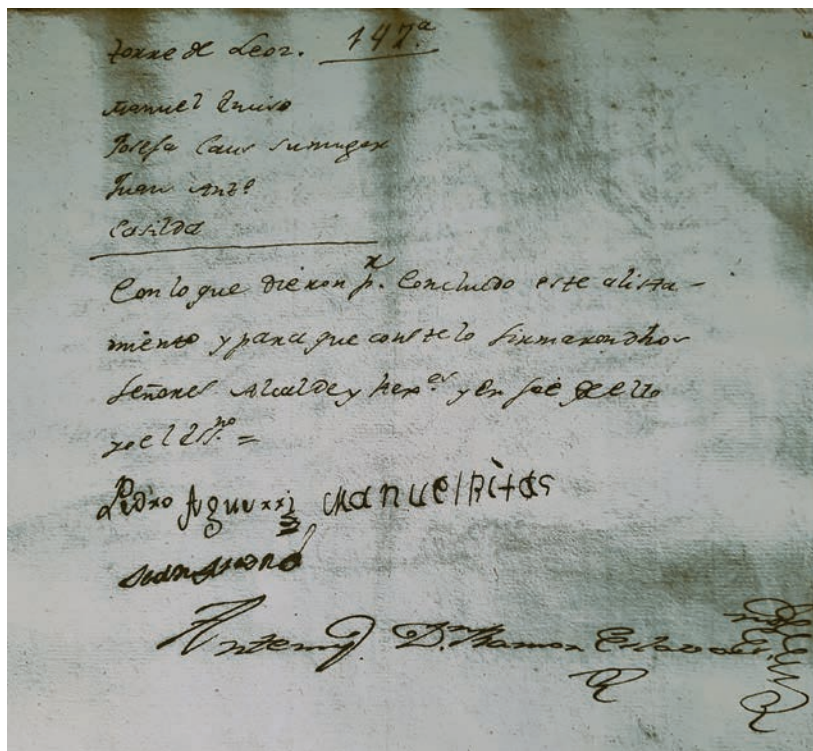 torre de Leoz. 147.ª
Manuel
Josefa Caus su muger
Juan Antº
Casilda
Con lo que dieron p.r concluido este alista-
miento y para que conste lo firmaron dhos
Señores Alcalde y Rex.es y en fee de ello
yo el Ess.no =
Pedro Aguerri Manuel Pitas
Antemy. D.n Ramon